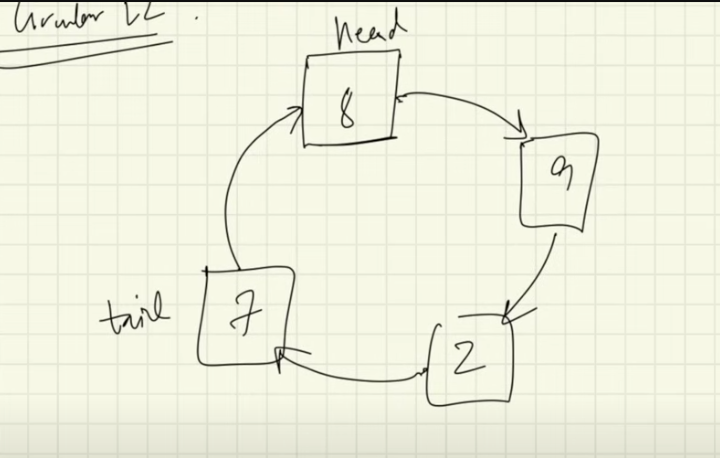 Circular LL
head
8
9
tail
7
2